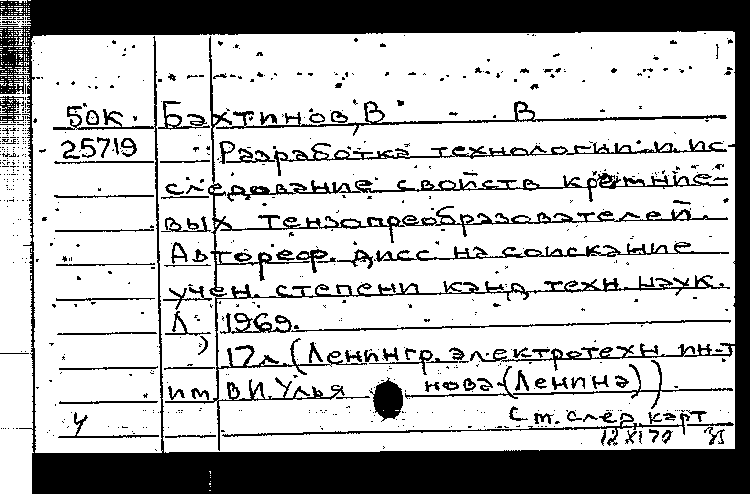 50к. Бахтинов, В В
25719 Разработка технологии и ис-
следование свойств кремние-
вых тензопреобразователей.
Автореф. дисс на соискание
учен. степени канд. техн. наук.
Л, 1969.
17л. (Ленингр. электротехн. ин-т
им. В.И. Улья нова-(Ленина))
См. след. карт
ч 12 XI 70